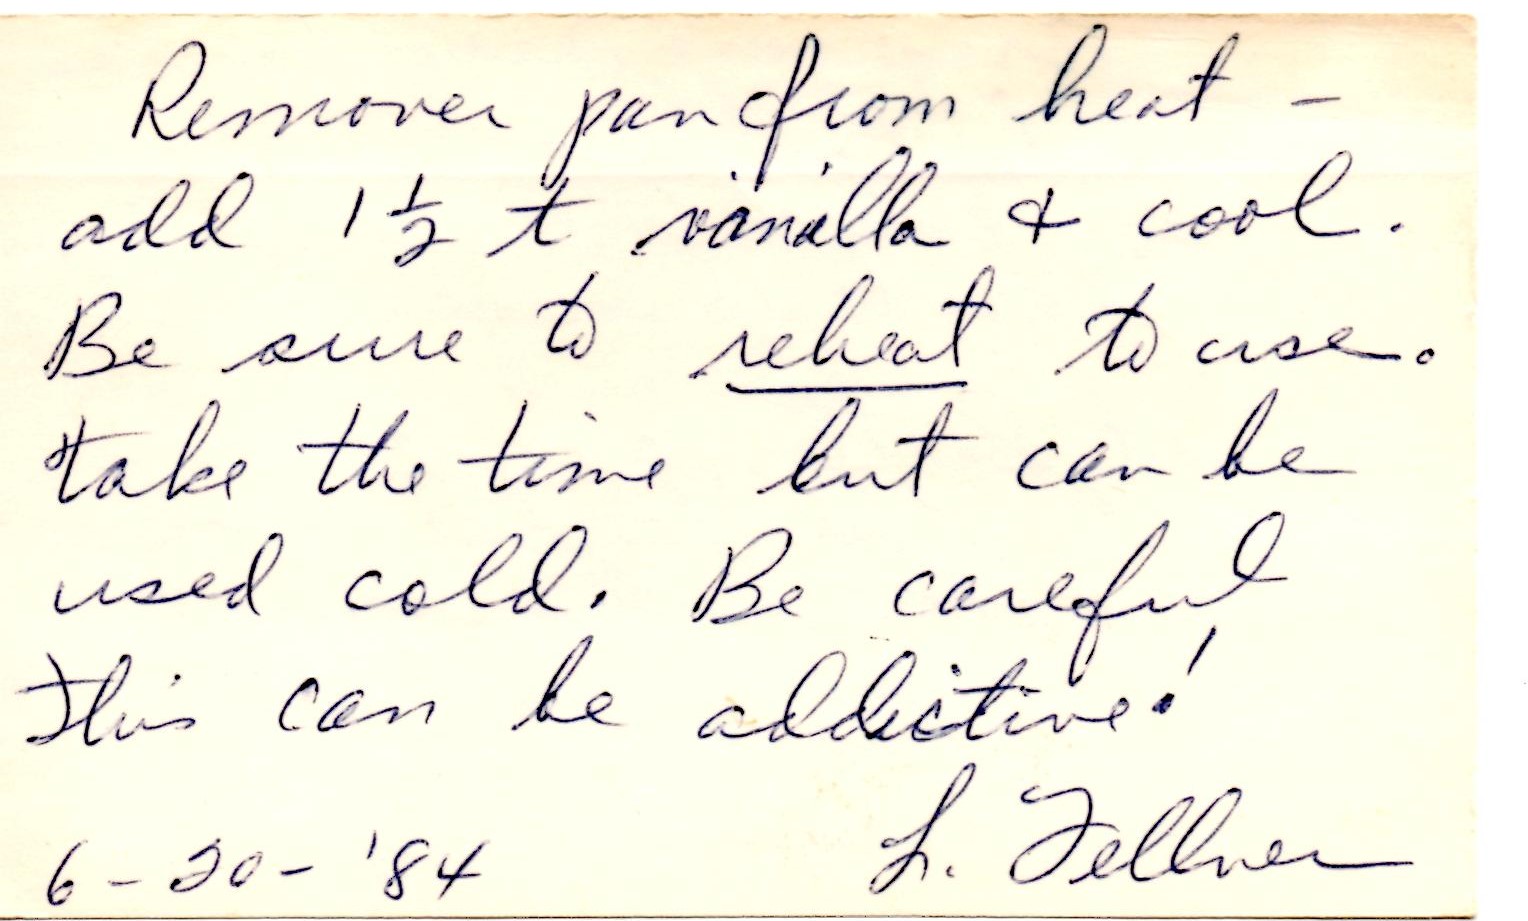 Remover pan from heat -
add 1 1/2 t vanilla & cool.
Be sure to reheat to use.
take the time but can be
used cold. Be careful
this can be addictive!
L. Fellner
6-20-'84